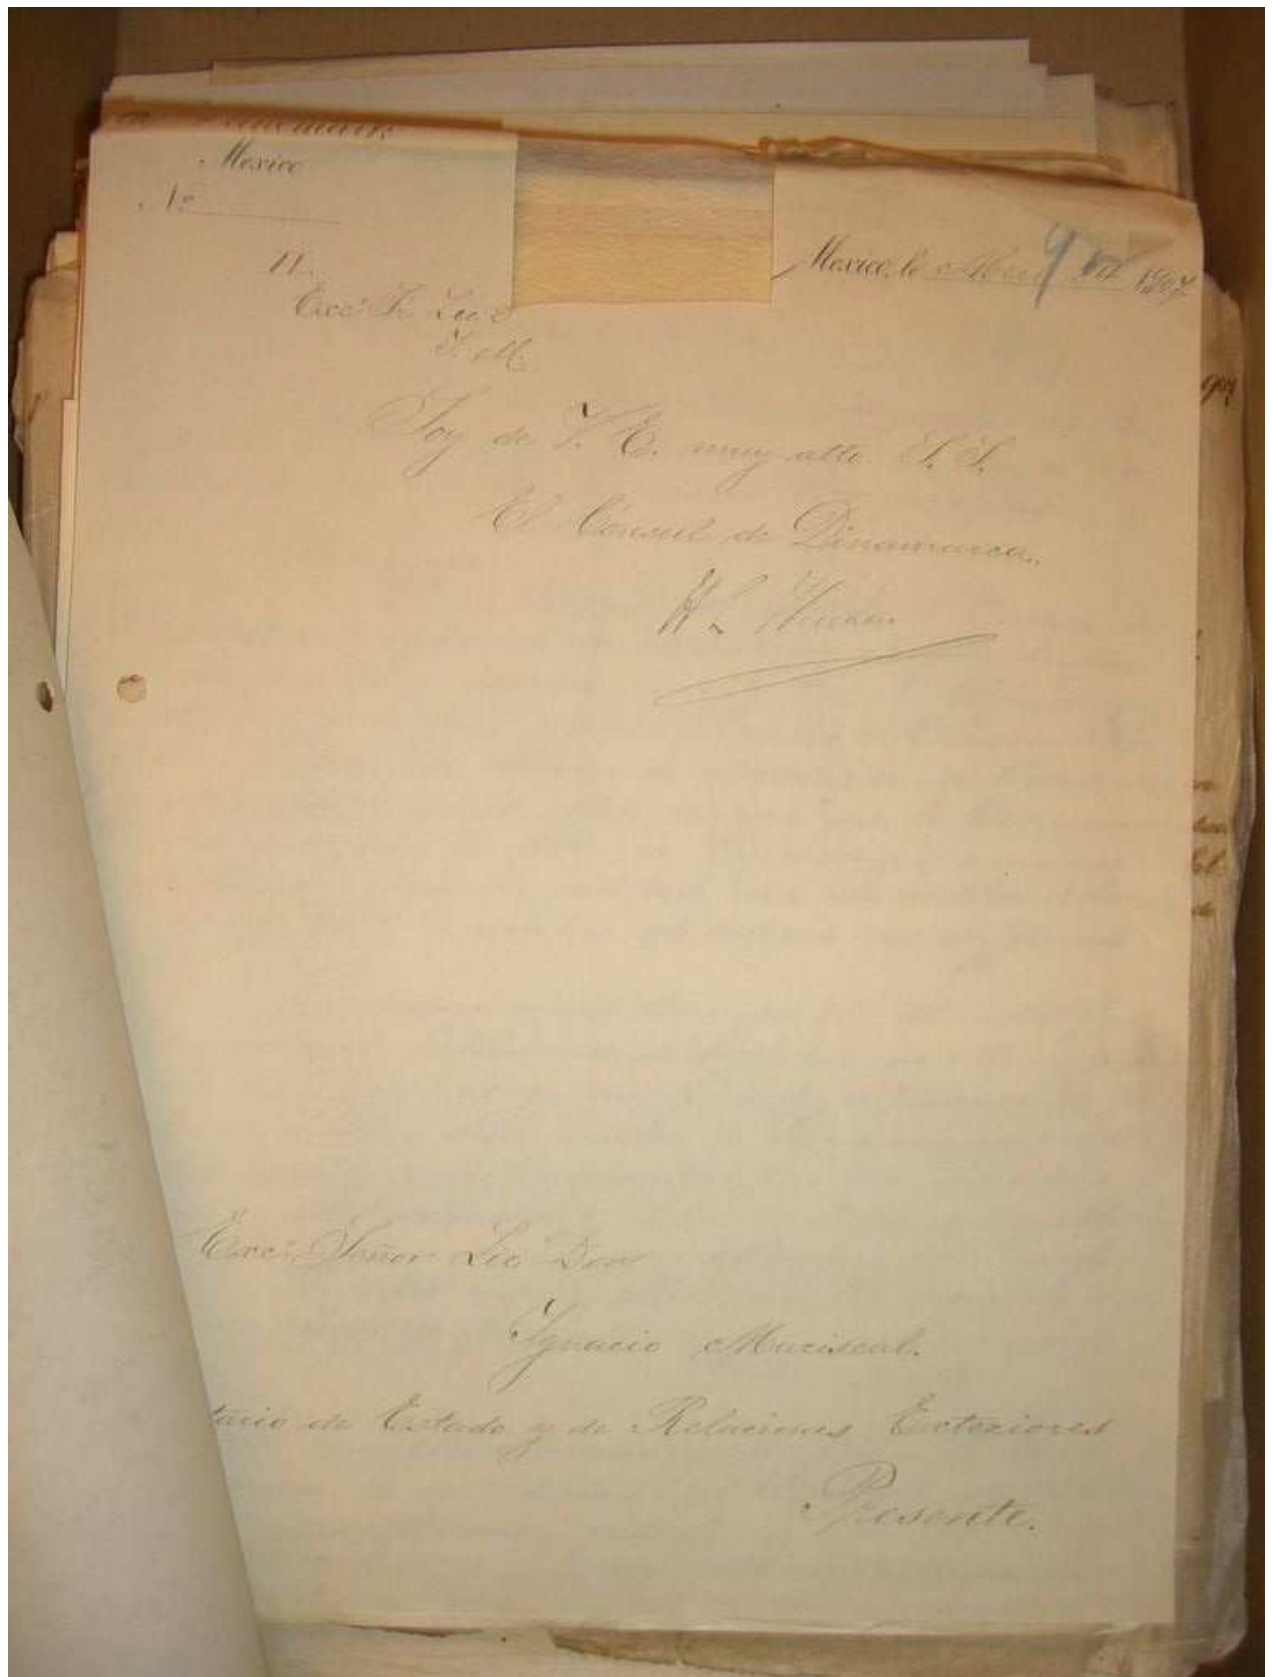 Mexico
No
Mexico, le 1907
II.
Exc. Sr. Lic D
I. M.
Soy de V. E. muy atto S. S.
El Cónsul de Dinamarca.
Exc. Señor Lic Don
Ignacio Mariscal.
tario de Estado y de Relaciones Exteriores
Presente.